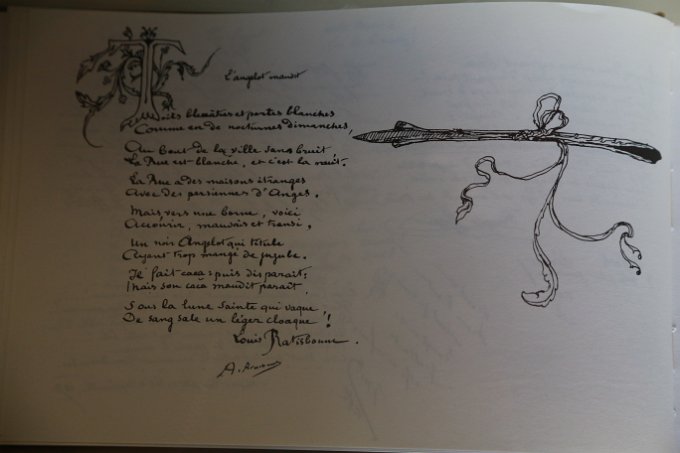 L'angelot maudit
Toits bleuâtres et portes blanches
Comme en de nocturnes dimanches,
Au bout de la ville sans bruit
La Rue est blanche, et c'est la nuit.
La Rue a des maisons étranges
Avec des persiennes d'Anges.
Mais, vers une borne, voici
Accourir, mauvais et transi,
Un noir Angelot qui titube,
Ayant trop mangé de jujube.
Il fait caca : puis disparaît :
Mais son caca maudit paraît,
Sous la lune sainte qui vaque,
De sang sale un léger cloaque !
Louis Ratisbonne.
A. Rimbaud